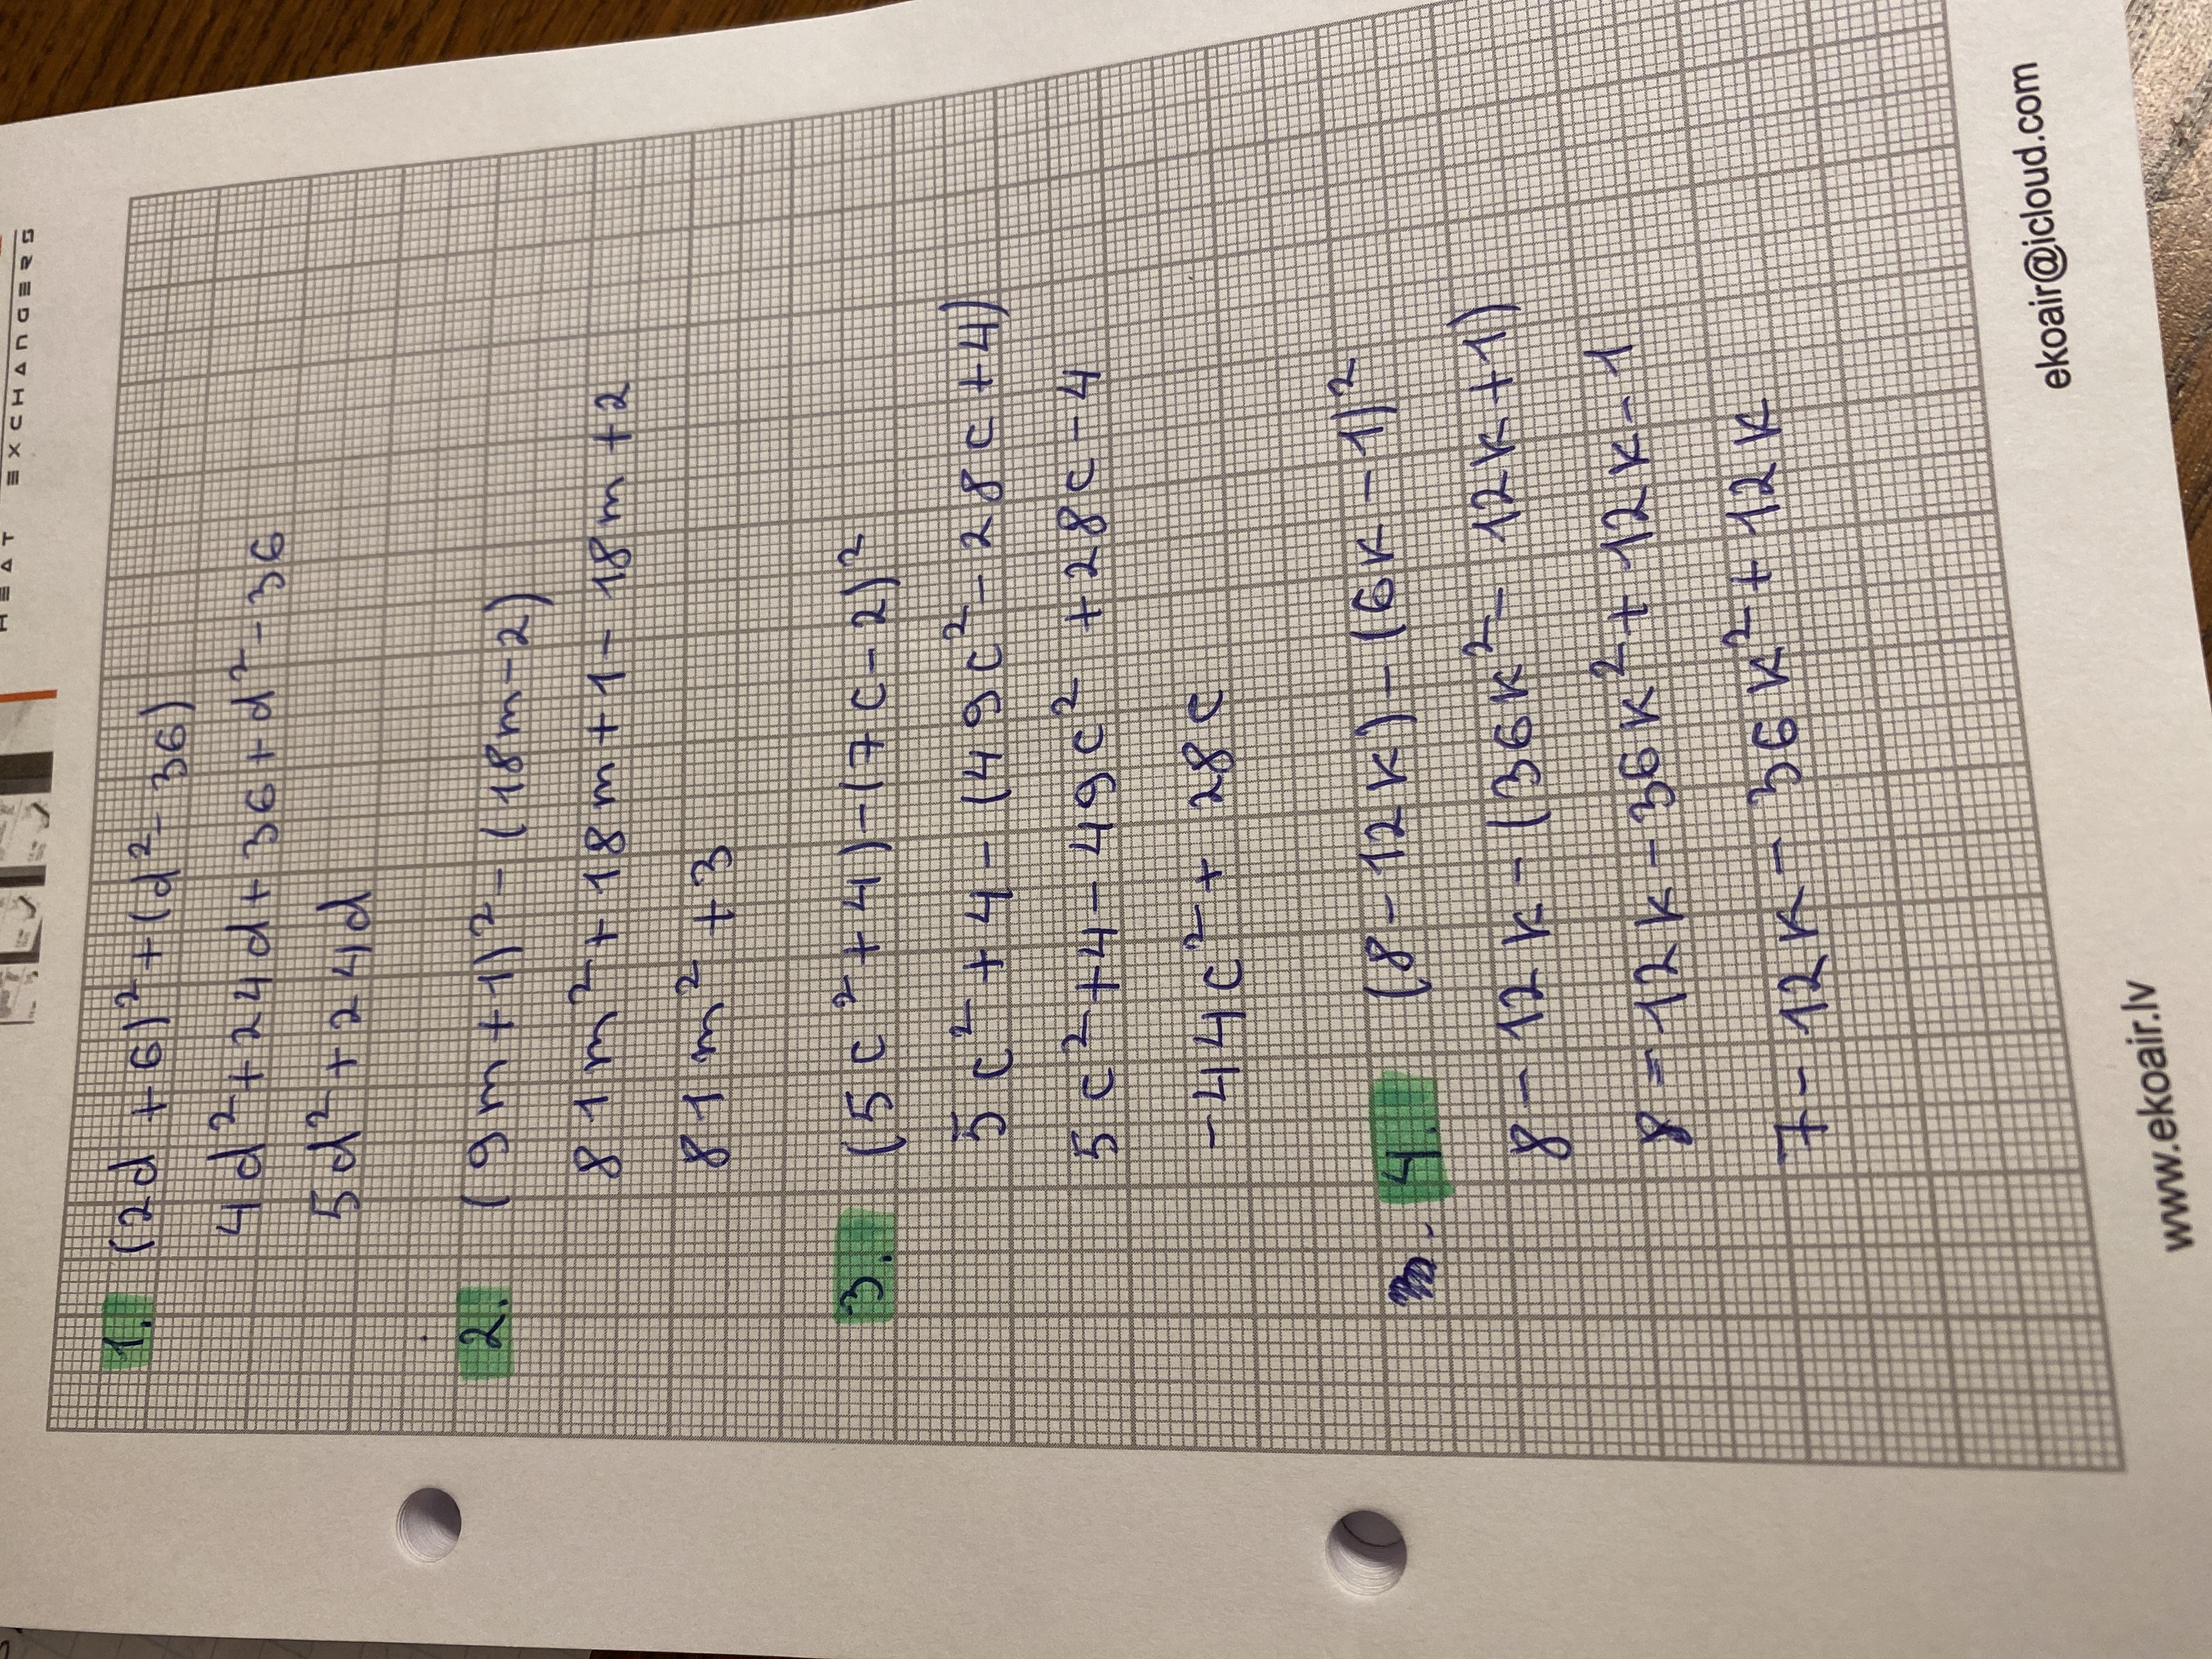 HEAT EXCHANGERS
1. (2d+6)²+(d²-36)
4d²+24d+36+d²-36
5d²+24d
2. (9m+1)²-(18m-2)
81m²+18m+1-18m+2
81m²+3
3. (5c²+4)-(7c-2)²
5c²+4-(49c²-28c+4)
5c²+4-49c²+28c-4
-44c²+28c
4. (8-12k)-(6k-1)²
8-12k-(36k²-12k+1)
8-12k-36k²+12k-1
7-12k-36k²+12k
www.ekoair.lv ekoair@icloud.com